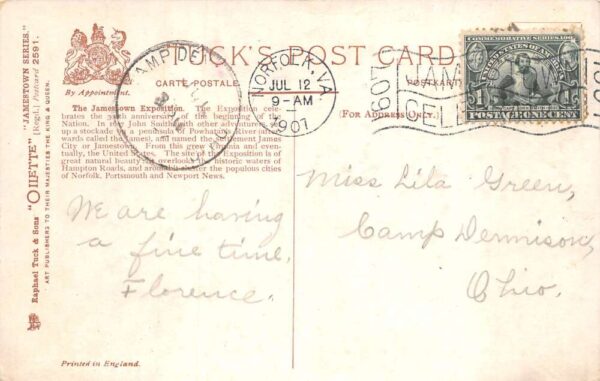 TUCK'S POST CARD
CARTE POSTALE
POSTKARTE
By Appointment.
(FOR ADDRESS ONLY.)
NORFOLK, VA.
JUL 12
9-AM
1907
1607
1907
COMMEMORATIVE SERIES 1907
UNITED STATES OF AMERICA
1 POSTAGE ONE CENT 1
The Jamestown Exposition. The Exposition cele-
brates the 300th anniversary of the beginning of the
Nation. In 1607 John Smith with other adventurers set
up a stockade on a peninsula of Powhatan River (after-
wards called the James), and named the settlement James
City or Jamestown. From this grew Virginia and even-
tually, the United States. The site of the Exposition is of
great natural beauty, it overlooks the historic waters of
Hampton Roads, and around it cluster the populous cities
of Norfolk, Portsmouth and Newport News.
We are having
a fine time.
Florence.
Miss Lila Green,
Camp Dennison,
Ohio.
Raphael Tuck & Sons' "OILETTE" [Regd.] Postcard 2591.
"JAMESTOWN SERIES."
ART PUBLISHERS TO THEIR MAJESTIES THE KING & QUEEN.
Printed in England.